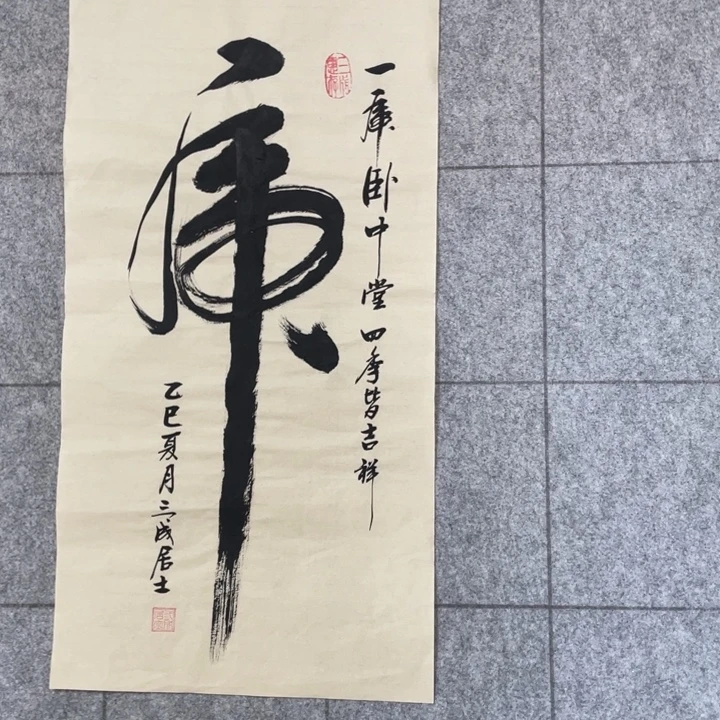 一虎卧中堂四季皆吉祥
虎
乙巳夏月三成居士